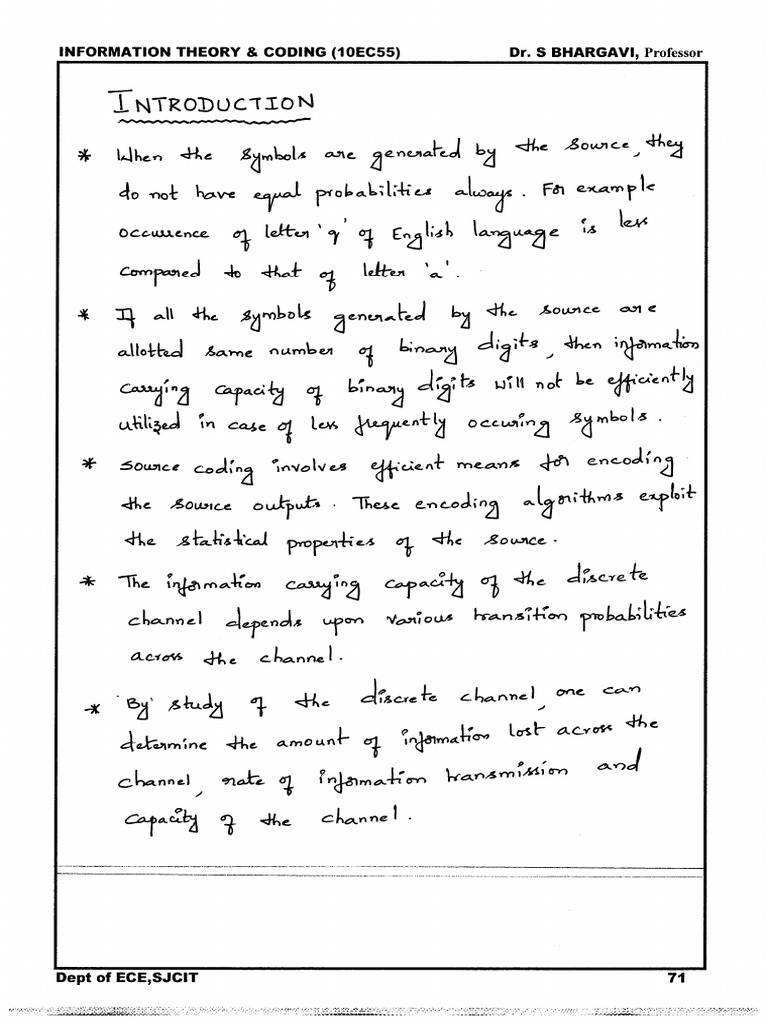 INFORMATION THEORY & CODING (10EC55) Dr. S BHARGAVI, Professor
INTRODUCTION
* When the symbols are generated by the source, they
do not have equal probabilities always. For example
occurrence of letter 'q' of English language is less
compared to that of letter 'a'.
* If all the symbols generated by the source are
allotted same number of binary digits, then information
carrying capacity of binary digits will not be efficiently
utilized in case of less frequently occuring symbols.
* Source coding involves efficient means for encoding
the source outputs. These encoding algorithms exploit
the statistical properties of the source.
* The information carrying capacity of the discrete
channel depends upon various transition probabilities
across the channel.
* 'By' study of the discrete channel, one can
determine the amount of information lost across the
channel, rate of information transmission and
capacity of the channel.
Dept of ECE,SJCIT 71